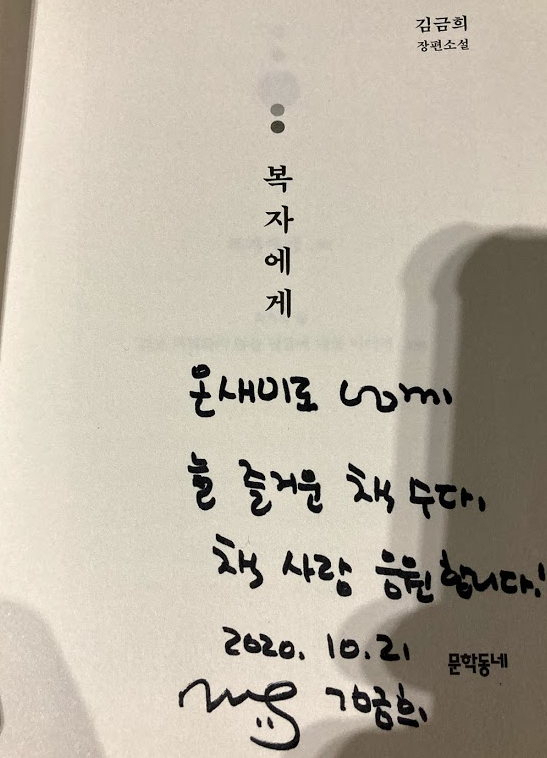 김금희
장편소설
복자에게
온새미로
늘 즐거운 책 수다.
책 사랑 응원합니다!
2020. 10. 21
문학동네
김금희.